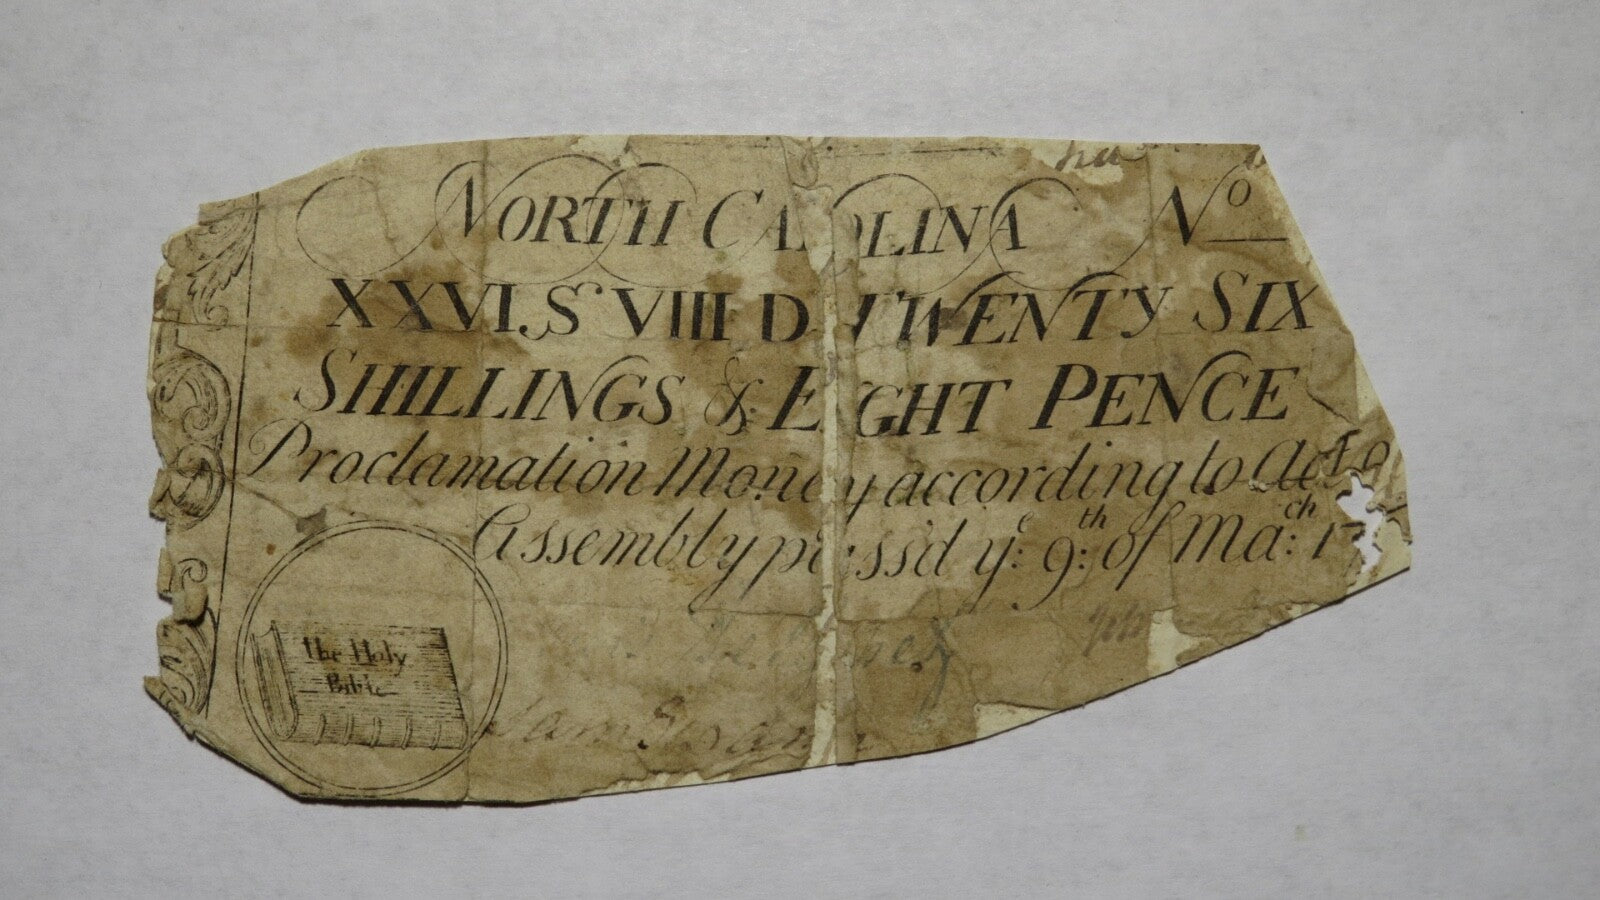 NORTH CAROLINA No
XXVI.S VIII D. TWENTY SIX
SHILLINGS & EIGHT PENCE
Proclamation Money according to Act o
Assembly pass'd ye: 9:th of Ma:ch 17
The Holy
Bible
Sam Swann